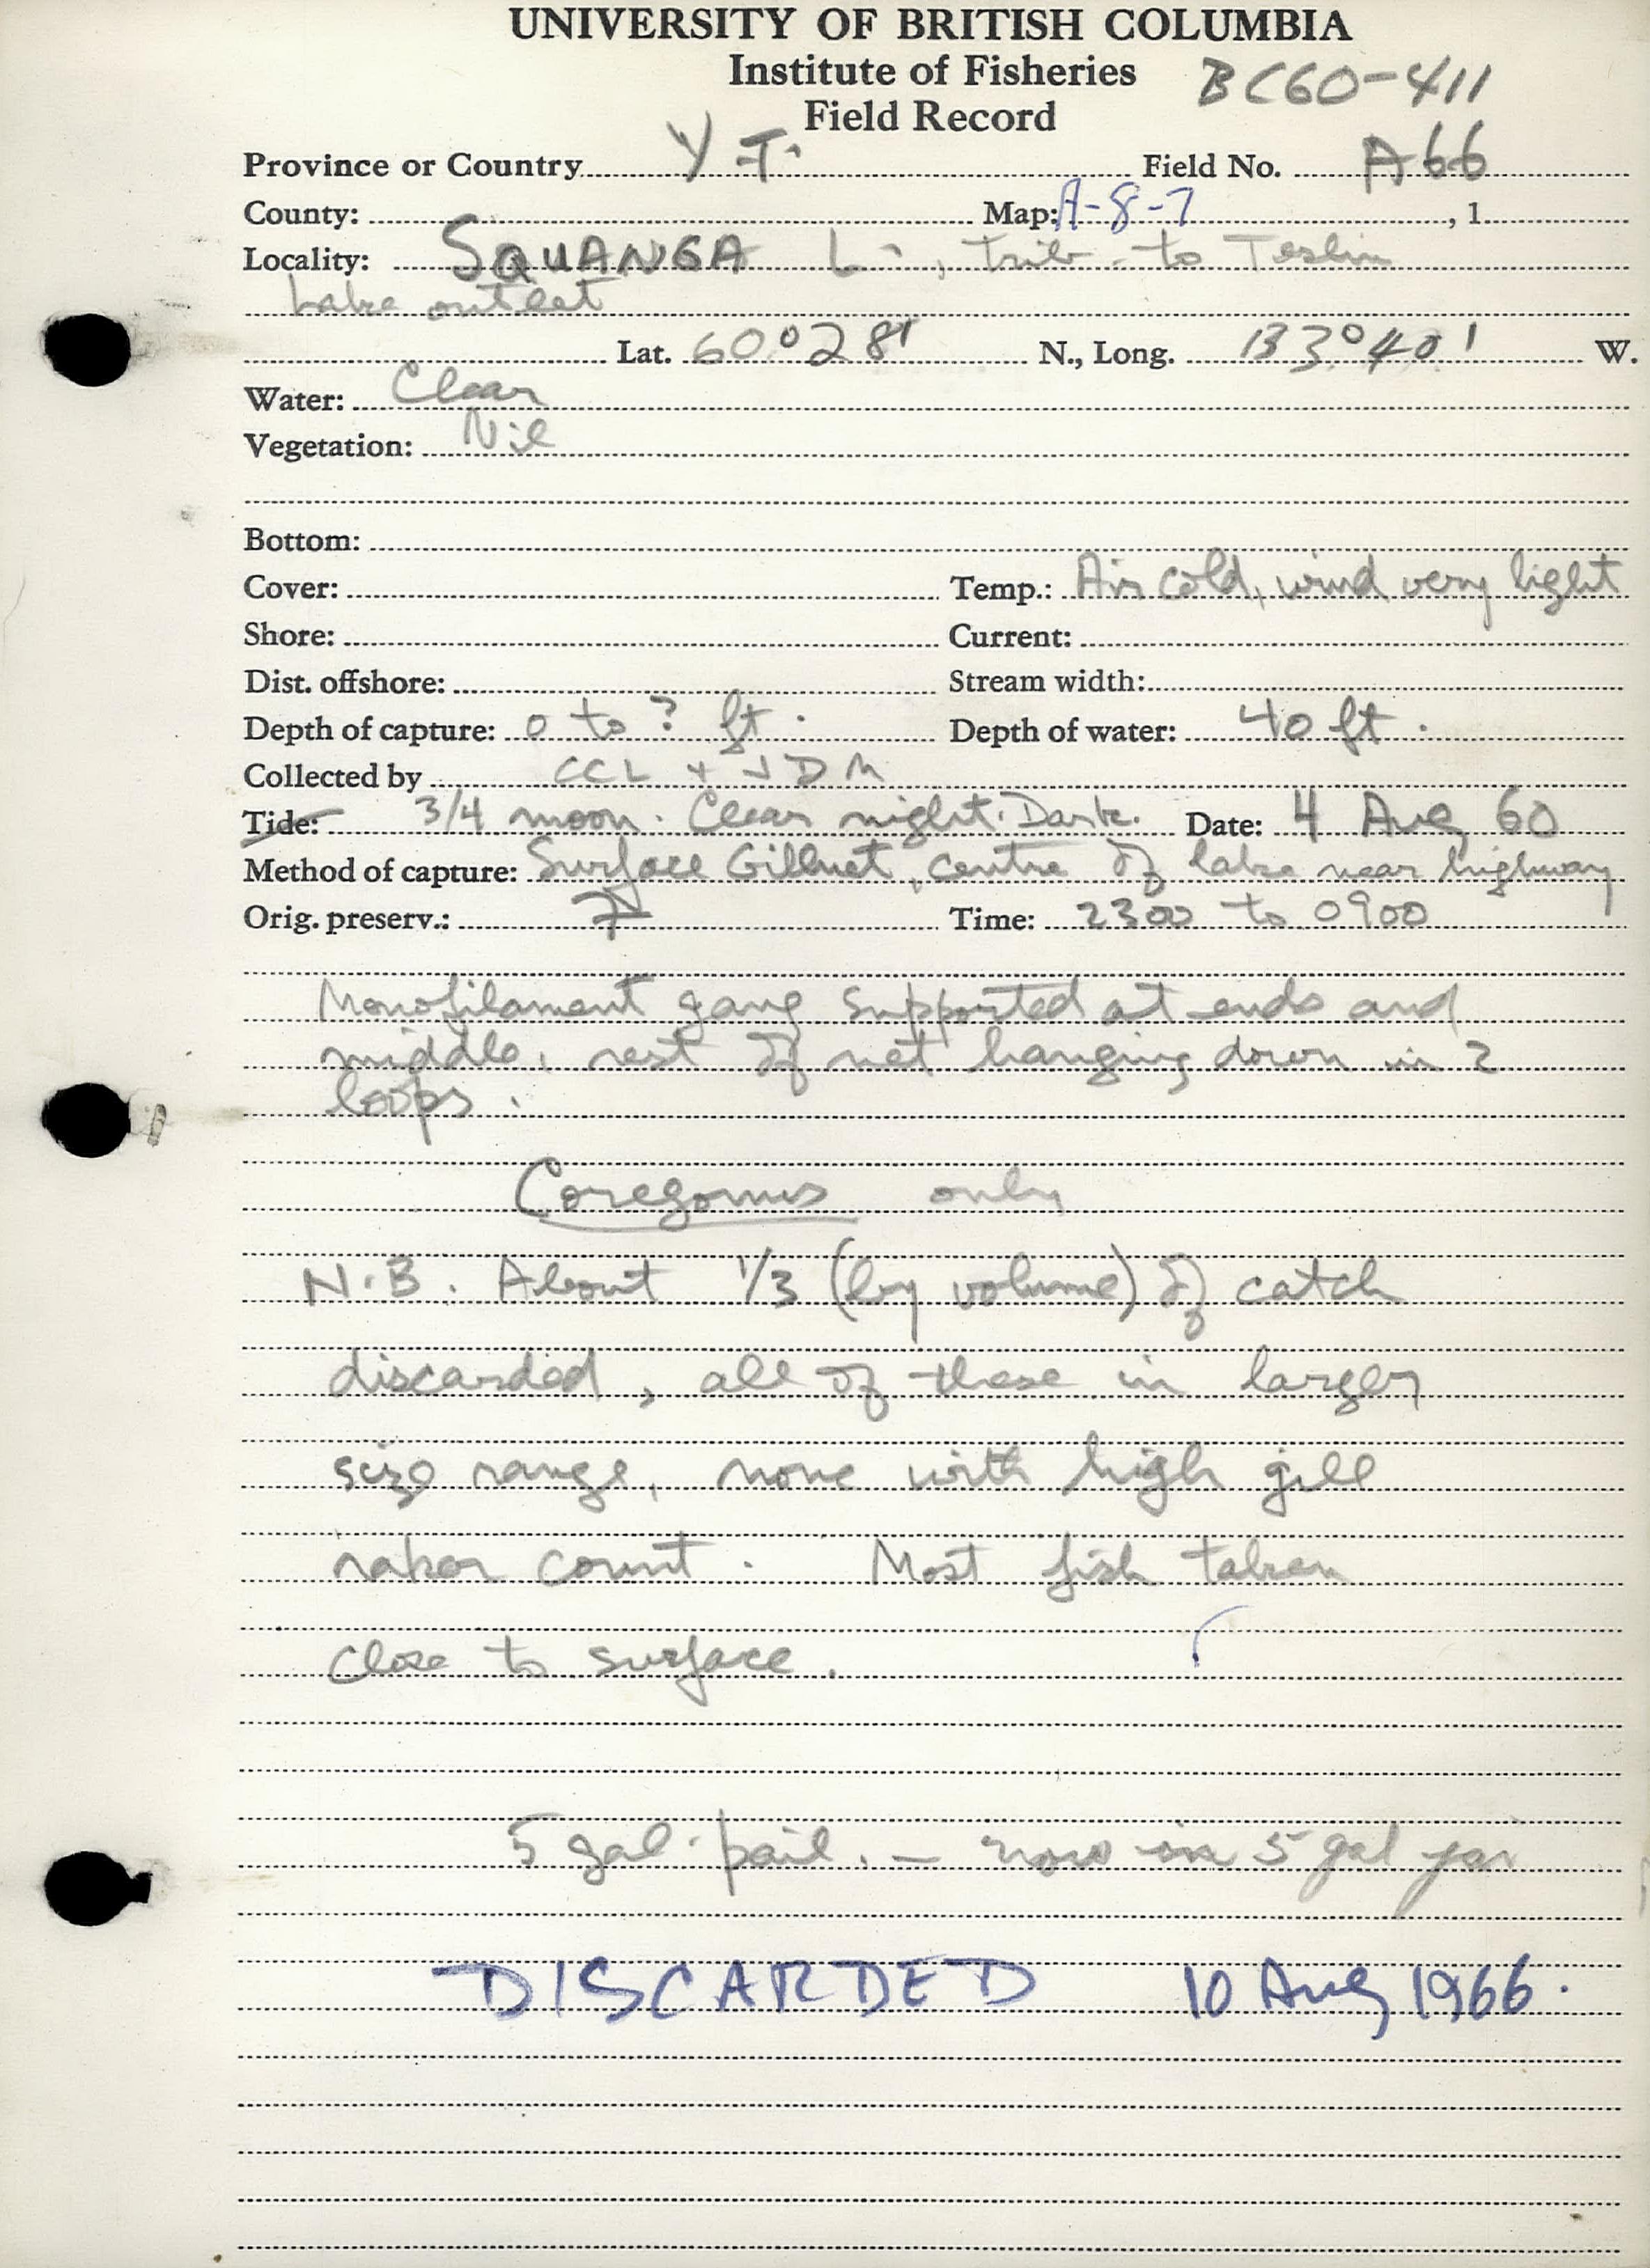 UNIVERSITY OF BRITISH COLUMBIA
Institute of Fisheries BC60-411
Field Record
Province or Country Y.T. Field No. A66
County: Map: A-8-7 , 1
Locality: SQUANGA L., trib. to Teslin
Lake outlet
Lat. 60°28' N., Long. 133°40' W.
Water: Clear
Vegetation: Nil
Bottom:
Cover: Temp.: Air cold, wind very light
Shore: Current:
Dist. offshore: Stream width:
Depth of capture: 0 to ? ft. Depth of water: 40 ft.
Collected by CCL + JDM
Tide: 3/4 moon. Clear night. Dark. Date: 4 Aug 60
Method of capture: Surface Gillnet, centre of lake near highway
Orig. preserv.: Time: 2300 to 0900
Monofilament gang supported at ends and
middle, rest of net hanging down in 2
loops.
Coregonus only
N.B. About 1/3 (by volume) of catch
discarded, all of these in larger
size range, none with high gill
raker count. Most fish taken
close to surface.
5 gal. pail. — now in 5 gal jar
DISCARDED 10 Aug 1966.